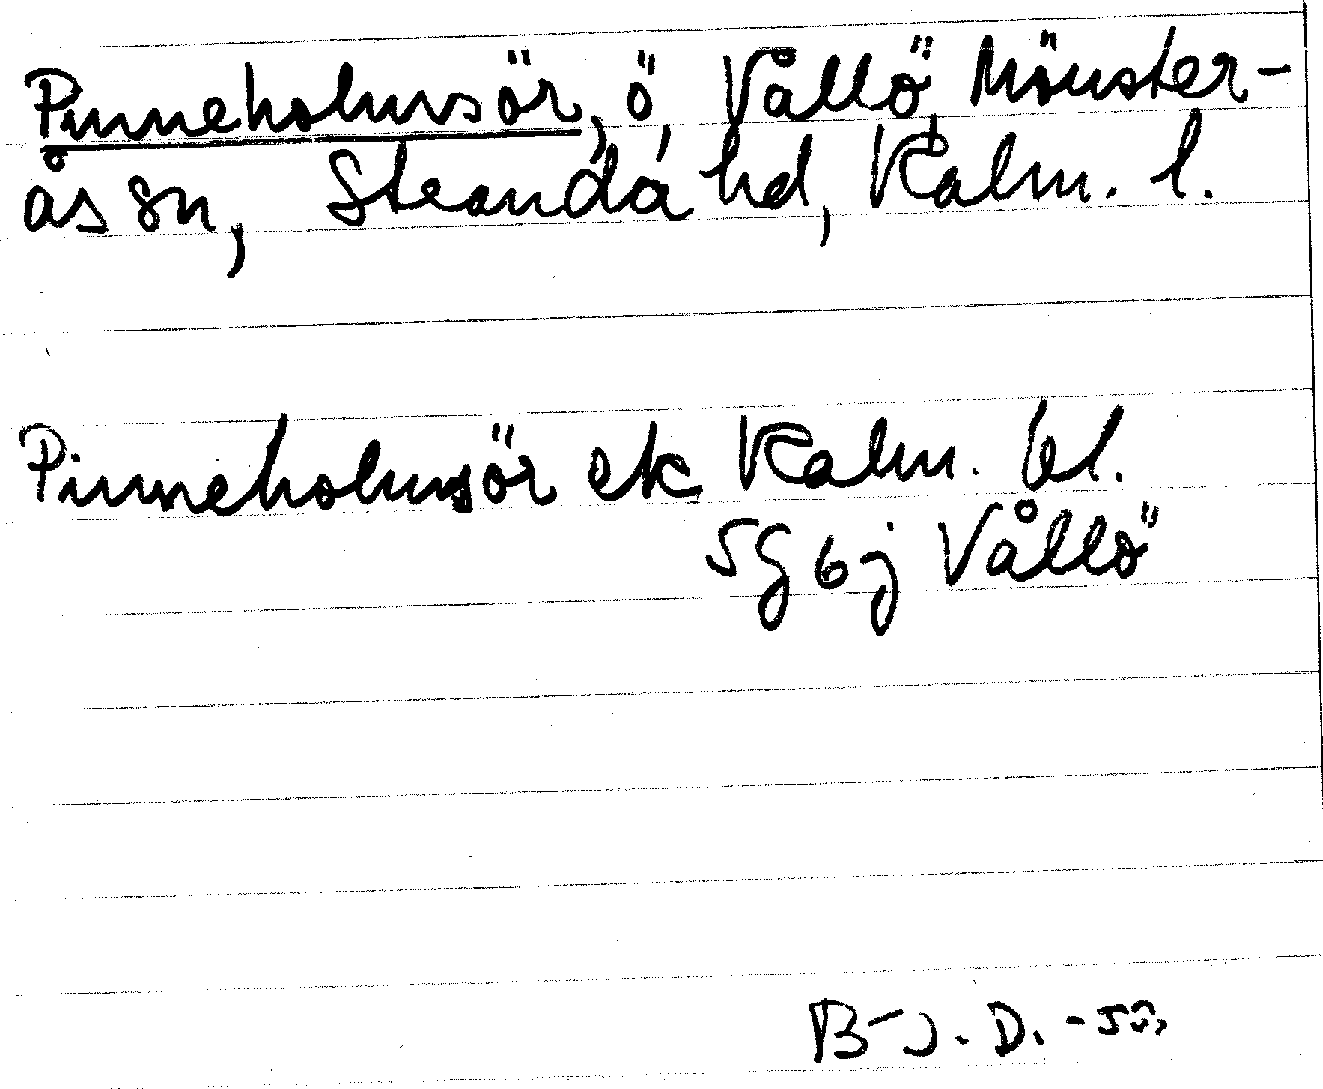 Pinneholmsör, ö, Vållö, Mönster-
ås sn, Stranda hd, Kalm. l.
Pinneholmsör ek Kalm. bl.
5G 6j Vållö
B-J. D.